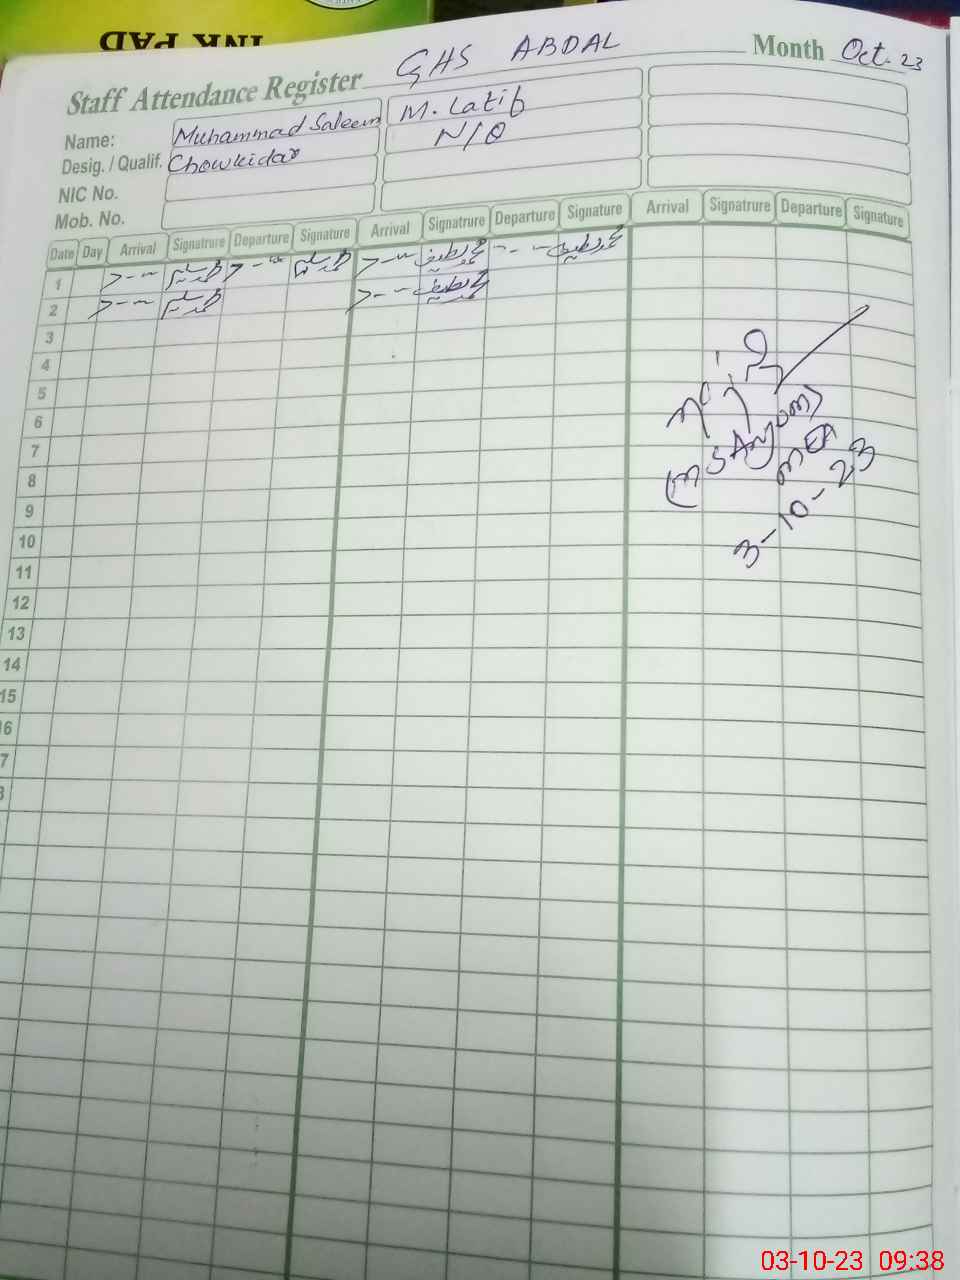 INK PAD
Staff Attendance Register GHS ABDAL Month Oct. 23
Name: Muhammad Saleem M. Latif
Desig. / Qualif. Chowkidar N/Q
NIC No.
Mob. No.
Date Day Arrival Signatrure Departure Signature Arrival Signatrure Departure Signature Arrival Signatrure Departure Signature
1 محمد سلیم محمد سلیم محمد لطیف محمد لطیف
2 محمد سلیم محمد لطیف
3
4
5
6
7
8
9
10
11
12
13
14
15
(M SANJUM)
MEA
3-10-23
03-10-23 09:38